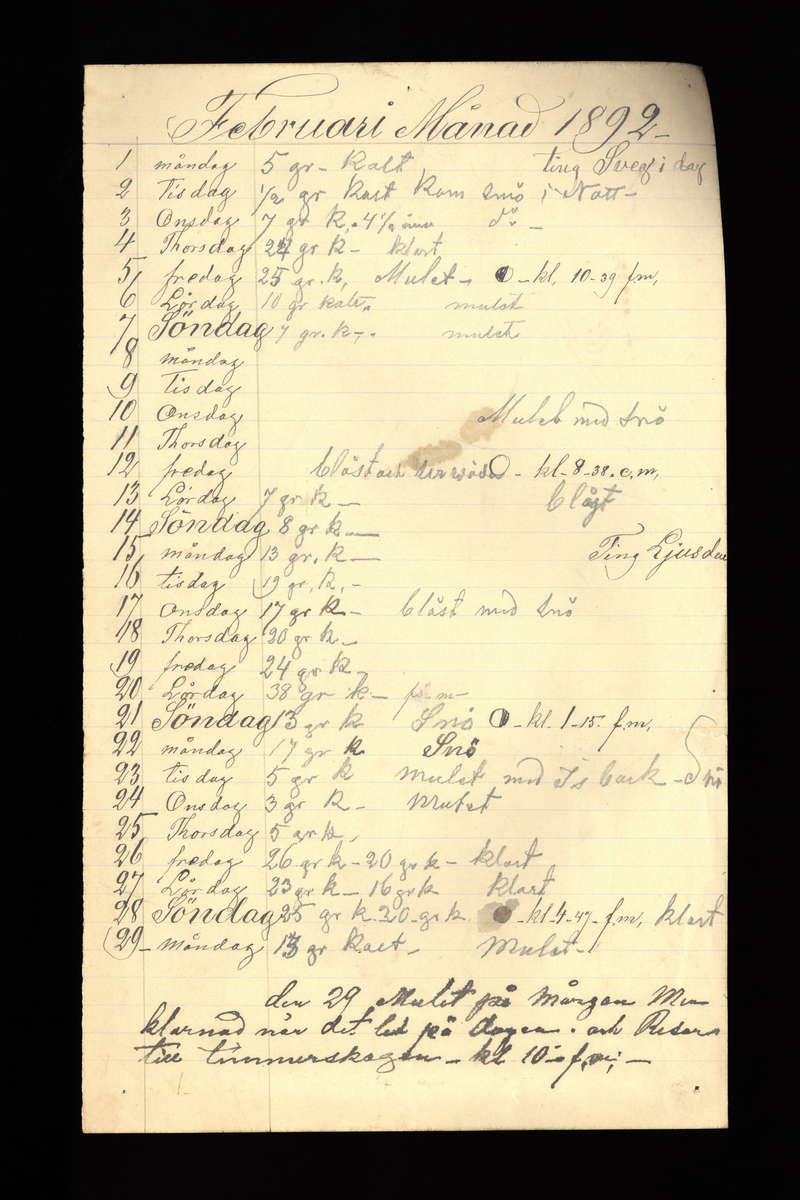 Februari Månad 1892 –
1 måndag 5 gr – kalt ting Sveg i dag
2 Tisdag ½ gr kalt kom snö i Natt –
3 Onsdag 7 gr k, – 4 ½ d:o –
4 Thorsdag 24 gr k – klart
5 fredag 25 gr. k, Mulet – kl, 10-39 fm,
6 Lördag 10 gr kalt, mulet
7 Söndag 7 gr. k –. mulet
8 måndag
9 Tisdag
10 Onsdag Mulet med snö
11 Thorsdag
12 fredag blåst och – kl – 8 – 38. e, m,
13 Lördag 7 gr k – blåst
14 Söndag 8 gr k. –
15 måndag 13 gr. k – Ting Ljusdal
16 tisdag 19 gr, k, –
17 Onsdag 17 gr k – blåst med snö
18 Thorsdag 20 gr k –
19 fredag 24 gr k –
20 Lördag 38 gr k – f. m –
21 Söndag 13 gr k Snö – kl. 1 – 15. f. m,
22 måndag 17 gr k Snö
23 tisdag 5 gr k mulet med Is bark – Snö
24 Onsdag 3 gr k – Mulet
25 Thorsdag 5 gr k,
26 fredag 26 gr k – 20 gr k – klart
27 Lördag 23 gr k – 16 gr k klart
28 Söndag 25 gr k. 20 – gr k – kl 4 – 47 – f. m, klart
29 – måndag 13 gr kalt – Mulet –
den 29 Mulet på Mårgon Men
klarnad när det led på dagen. och Resar
till timmerskogen – kl 10 – f, m; –